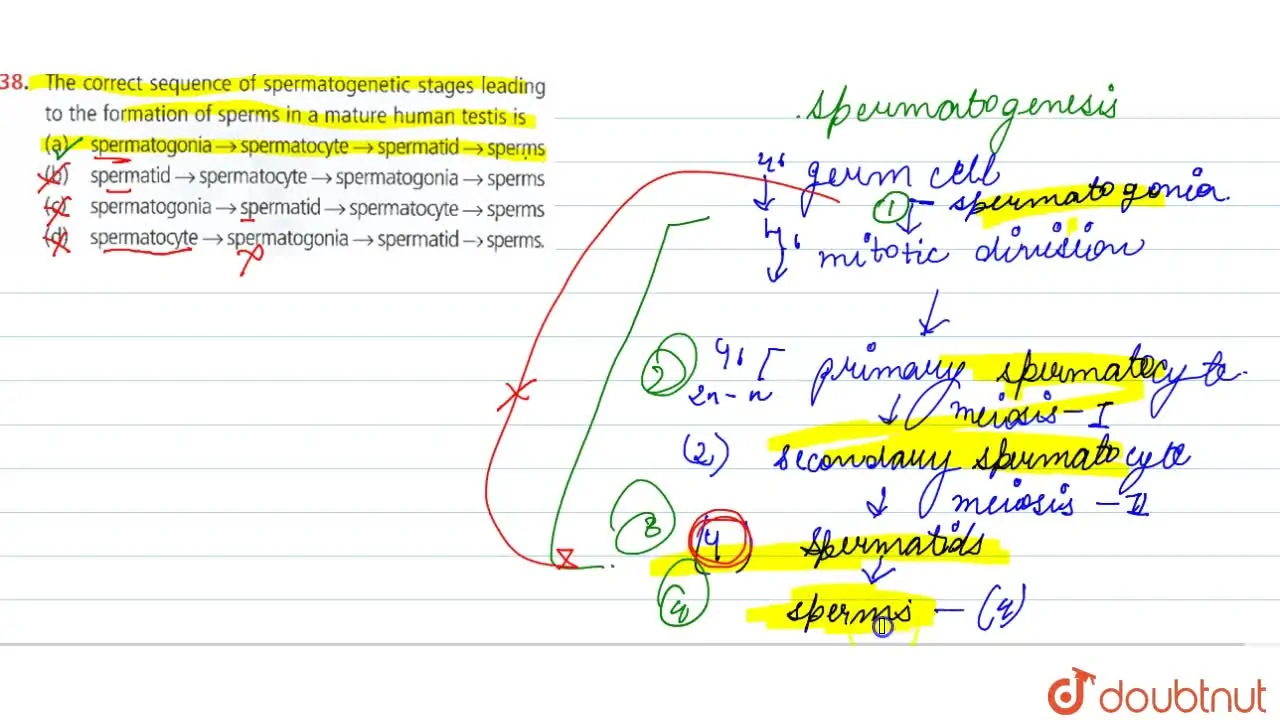 38. The correct sequence of spermatogenetic stages leading
to the formation of sperms in a mature human testis is
(a) spermatogonia → spermatocyte → spermatid → sperms
(b) spermatid → spermatocyte → spermatogonia → sperms
(c) spermatogonia → spermatid → spermatocyte → sperms
(d) spermatocyte → spermatogonia → spermatid → sperms.
spermatogenesis
46 germ cell
1 - spermatogonia
46 mitotic division
2 46 [ primary spermatocyte
2n-n meiosis-I
(2) secondary spermatocyte
meiosis-II
3 4 spermatids
4 sperms - (4)
doubtnut